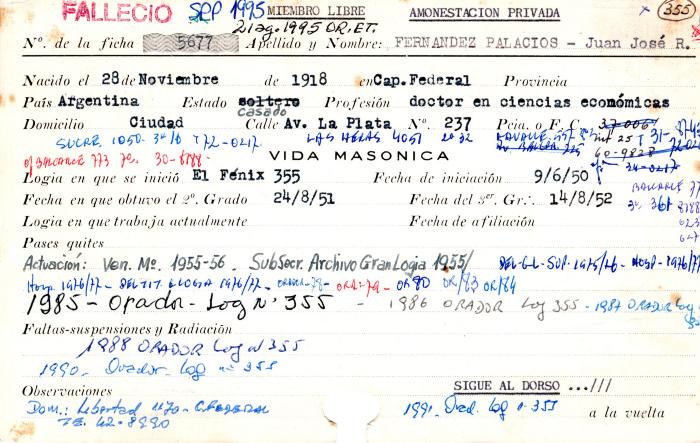 FALLECIO SEP 1995 MIEMBRO LIBRE AMONESTACION PRIVADA x 355
Diag. 1995 OR. ET.
Nº. de la ficha 5677 Apellido y Nombre: FERNANDEZ PALACIOS - Juan José R.
Nacido el 28 de Noviembre de 1918 en Cap. Federal Provincia
País Argentina Estado soltero Profesión doctor en ciencias económicas
casado
Domicilio Ciudad Calle Av. La Plata Nº. 237 Pcia. o F. C.
SUCRE 1050-3º/6 T 72-0217 LAS HERAS 4051 2º 32
VIDA MASONICA
Logia en que se inició El Fénix 355 Fecha de iniciación 9/6/50
Fecha en que obtuvo el 2º. Grado 24/8/51 Fecha del 3er. Gr∴. 14/8/52
Logia en que trabaja actualmente Fecha de afiliación
Pases quites
Actuación: Ven. Mº. 1955-56. SubSecr. Archivo Gran Logia 1955/ DEL-G.L-SUP-1975/76-HOSP-1976/77
Hosp. 1976/77- DEL TIT. LOGIA 1976/77- ORADOR-78- ORA-79- OR 80 OR/83 OR/84
1985- Orador- Log nº 355 - 1986 ORADOR Log 355 - 1987 ORADOR Log
Faltas-suspensiones y Radiación
1988 ORADOR Log nº 355
1990- Orador- Log nº 355
Observaciones SIGUE AL DORSO ...///
Dom.: Libertad 1170- C. FEDERAL 1991- Orad. Log n- 355 a la vuelta
TE. 42-8990